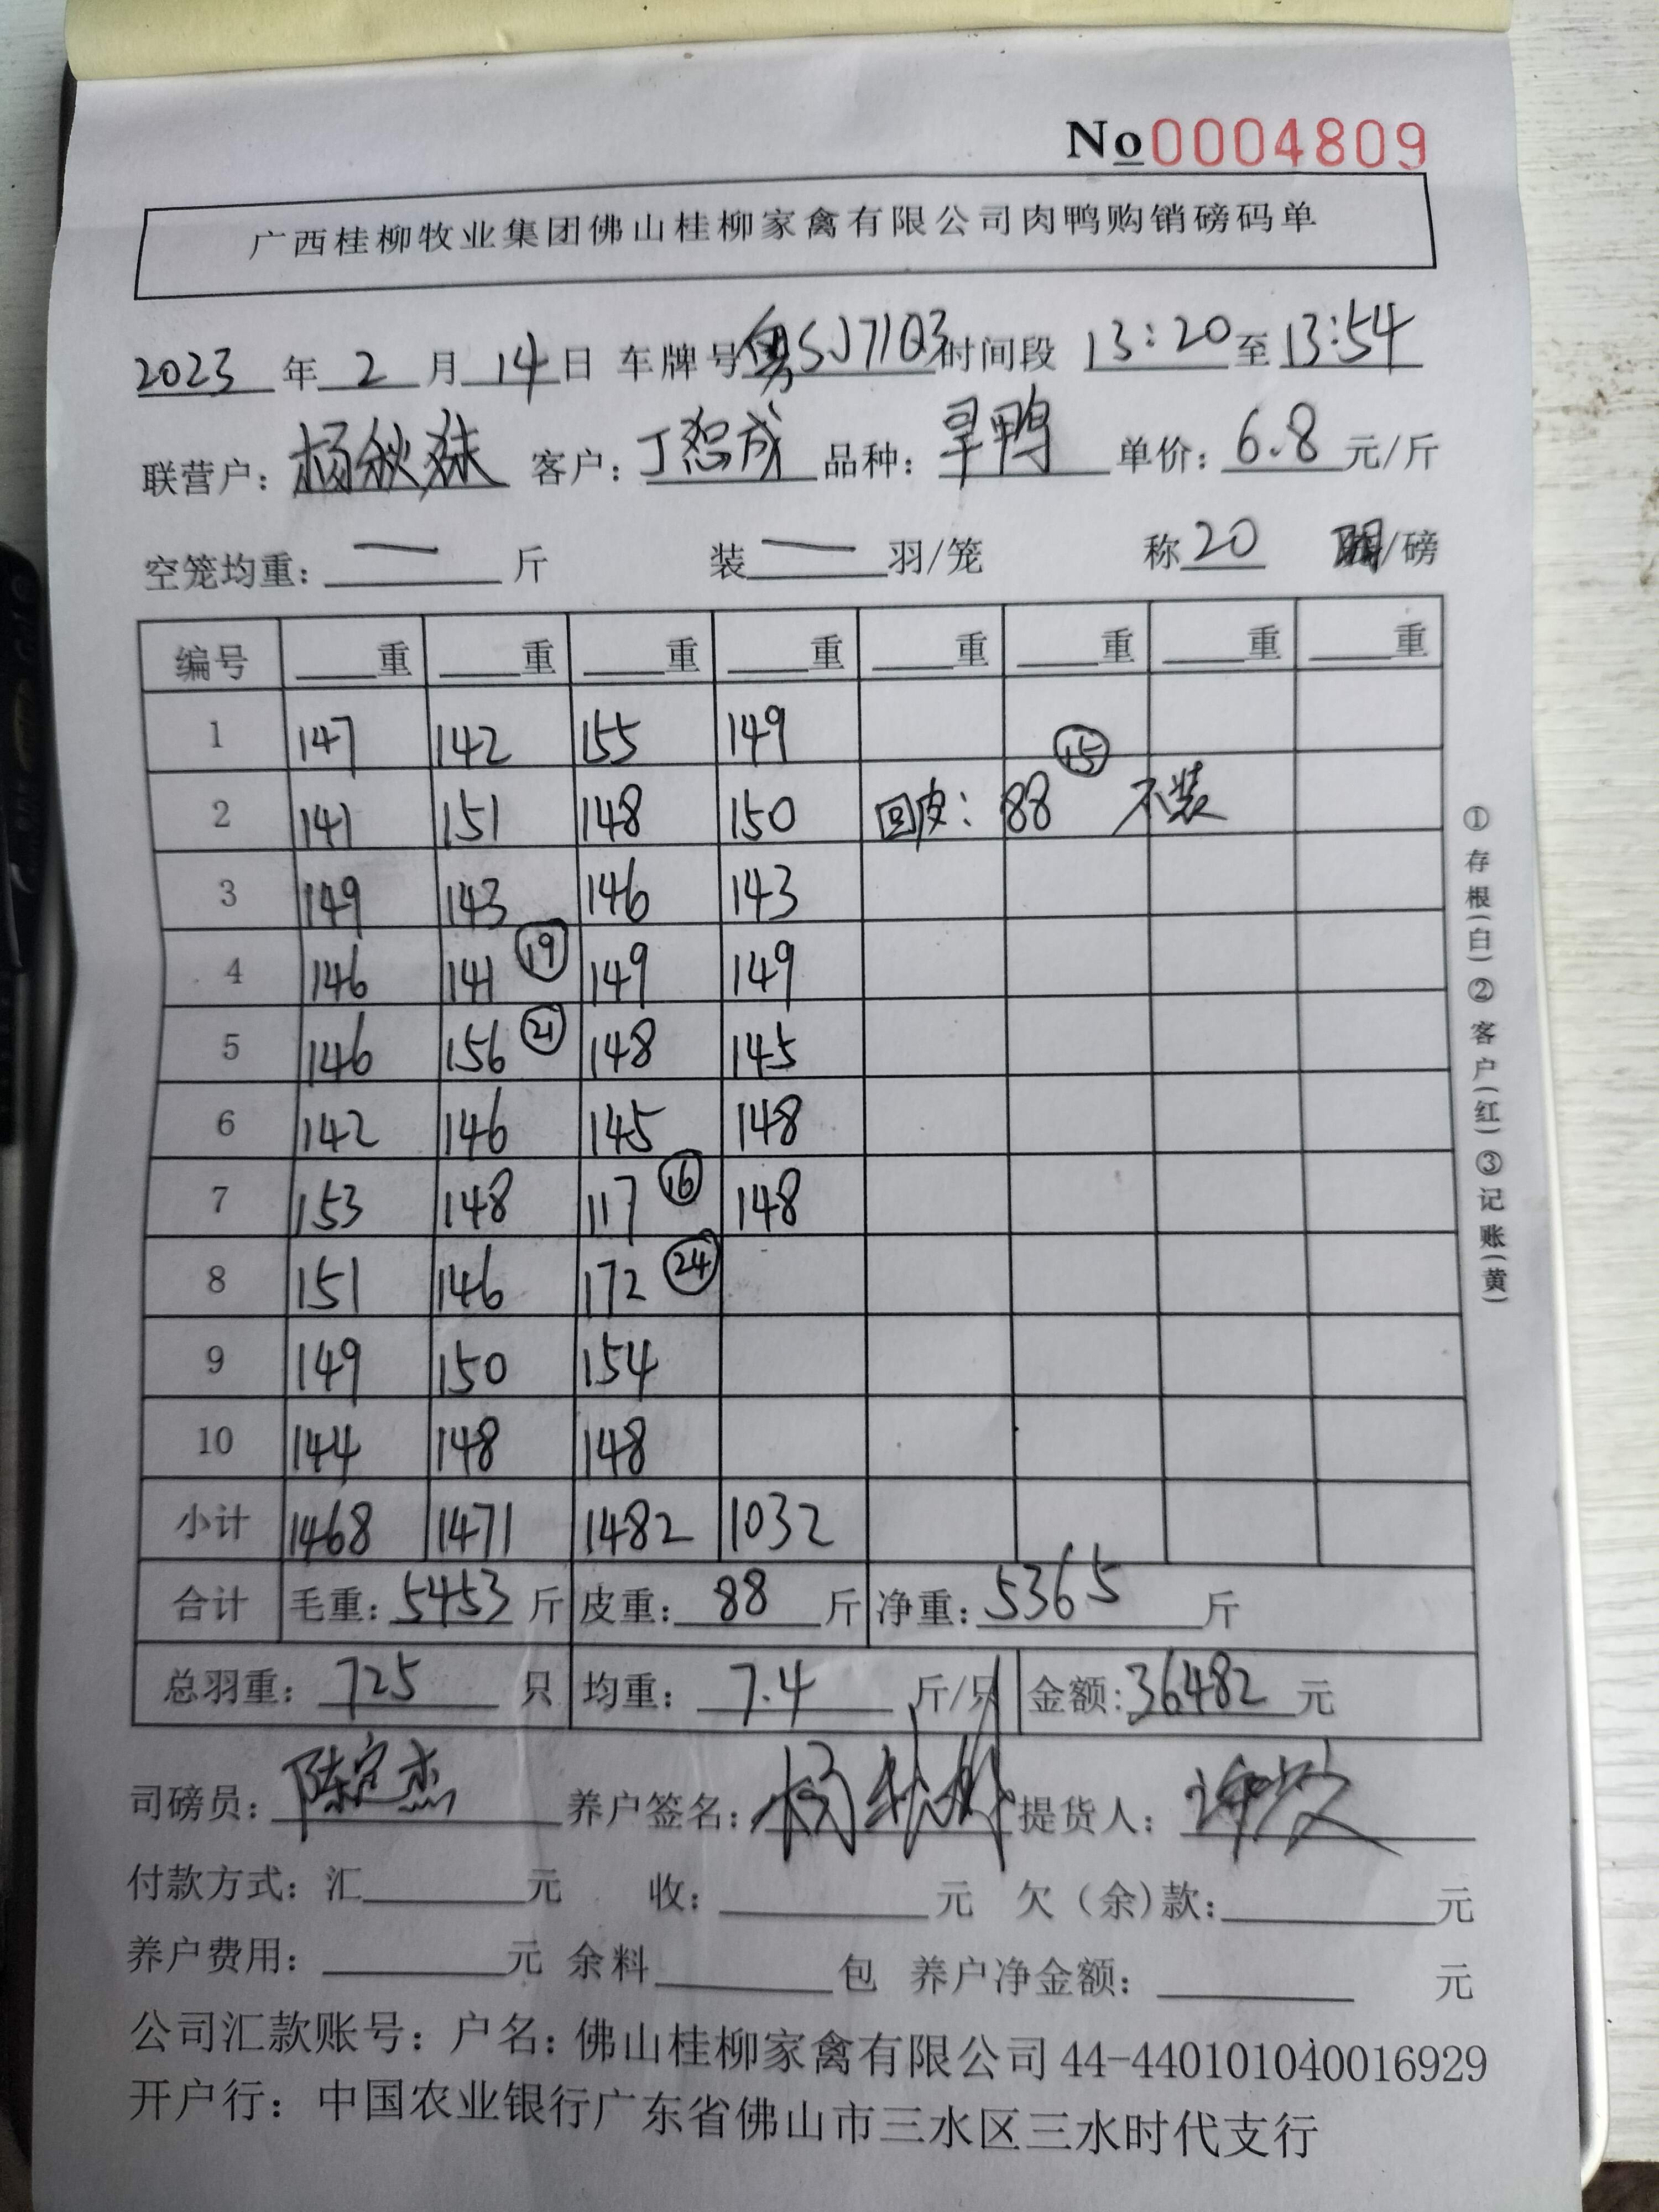 No 0004809
广西桂柳牧业集团佛山桂柳家禽有限公司肉鸭购销磅码单
2023年2月14日 车牌号粤SJ71Q3时间段 13:20至13:54
联营户: 杨秋 客户: 丁恕成 品种: 旱鸭 单价: 6.8元/斤
空笼均重: — 斤 装 — 羽/笼 称20 /磅
编号 重 重 重 重 重 重 重 重
1 147 142 155 149
2 141 151 148 150 回皮: 88 ⑮ 不装
3 149 143 146 143
4 146 141 ⑲ 149 149
5 146 156 ㉑ 148 145
6 142 146 145 148
7 153 148 117 ⑯ 148
8 151 146 172 ㉔
9 149 150 154
10 144 148 148
小计 1468 1471 1482 1032
合计 毛重: 5453 斤 皮重: 88 斤 净重: 5365 斤
总羽重: 725 只 均重: 7.4 斤/只 金额: 36482 元
司磅员: 陈定杰 养户签名: 杨秋 提货人:
付款方式: 汇 元 收: 元 欠(余)款: 元
养户费用: 元 余料 包 养户净金额: 元
公司汇款账号: 户名: 佛山桂柳家禽有限公司 44-440101040016929
开户行: 中国农业银行广东省佛山市三水区三水时代支行
①存根(白)②客户(红)③记账(黄)